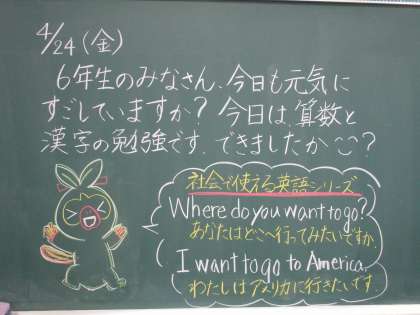 4/24(金)
6年生のみなさん、今日も元気に
すごしていますか？今日は、算数と
漢字の勉強です。できましたか？
社会で使える英語シリーズ
Where do you want to go?
あなたはどこへ行ってみたいですか。
I want to go to America.
わたしはアメリカに行きたいです。